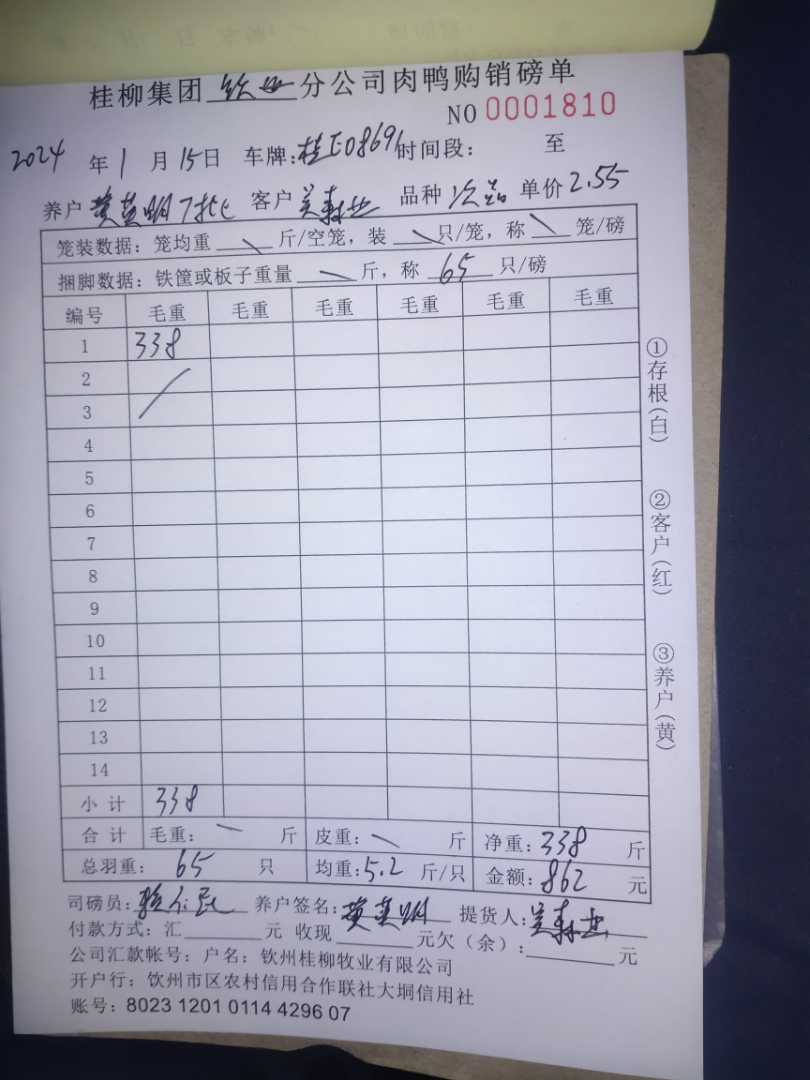 桂柳集团 钦州 分公司肉鸭购销磅单
NO 0001810
2024 年 1 月 15 日 车牌: 桂E08691 时间段: 至
养户 黄英明7批 客户 吴森业 品种 次品 单价 2.55
笼装数据: 笼均重 \ 斤/空笼, 装 \ 只/笼, 称 \ 笼/磅
捆脚数据: 铁筐或板子重量 \ 斤, 称 65 只/磅
编号 毛重 毛重 毛重 毛重 毛重 毛重
1 338
2
3
4
5
6
7
8
9
10
11
12
13
14
小计 338
合计 毛重: \ 斤 皮重: \ 斤 净重: 338 斤
总羽重: 65 只 均重: 5.2 斤/只 金额: 862 元
司磅员: 养户签名: 黄英明 提货人: 吴森业
付款方式: 汇 元 收现 元欠(余): 元
公司汇款帐号: 户名: 钦州桂柳牧业有限公司
开户行: 饮州市区农村信用合作联社大垌信用社
账号: 8023 1201 0114 4296 07
①存根(白) ②客户(红) ③养户(黄)